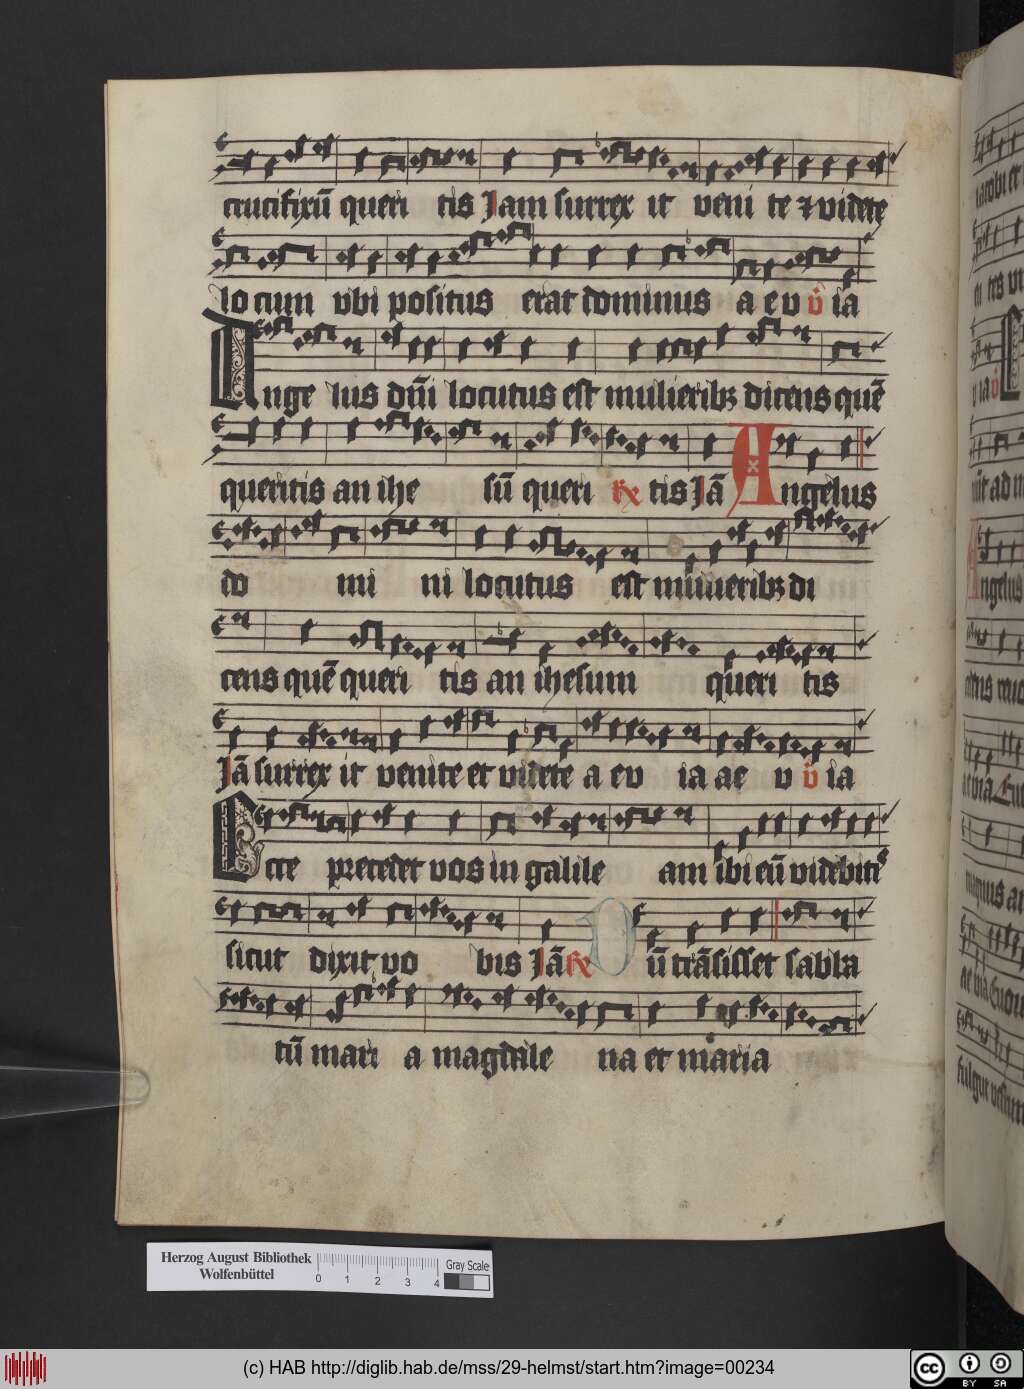 crucifixū queri tis Jam surrex it veni te ⁊ videte
lo cum vbi positus erat dominus a e v v̾ ia
Ange lus dn̄i locutus est mulieribꝫ dicens quē
queritis an ihe sū queri ℟ tis Jā Angelus
do mi ni locutus est mulieribꝫ di
cens quē queri tis an ihesum queri tis
Jā surrex it venite et videte a ev ia ae v v̾ ia
Ecce precedet vos in galile am ibi eū videbitꝭ
sicut dixit vo bis Jā ℟ Dū trāsisset sabba
tū mari a magdale na et maria
Herzog August Bibliothek
Wolfenbüttel
0 1 2 3 4
Gray Scale
(c) HAB http://diglib.hab.de/mss/29-helmst/start.htm?image=00234
cc BY SA